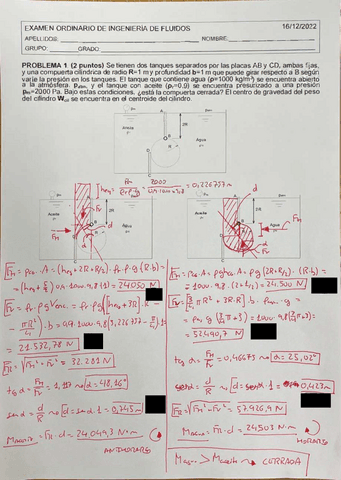 EXAMEN ORDINARIO DE INGENIERÍA DE FLUIDOS 16/12/2022
APELLIDOS: NOMBRE:
GRUPO: GRADO:
PROBLEMA 1 (2 puntos) Se tienen dos tanques separados por las placas AB y CD, ambas fijas,
y una compuerta cilíndrica de radio R=1 m y profundidad b=1 m que puede girar respecto a B según
varíe la presión en los tanques. El tanque que contiene agua (ρ=1000 kg/m³) se encuentra abierto
a la atmósfera, patm, y el tanque con aceite (ρr=0,9) se encuentra presurizado a una presión
pm=2000 Pa. Bajo estas condiciones, ¿está la compuerta cerrada? El centro de gravedad del peso
del cilindro se encuentra en el centroide del cilindro.
Aceite
2R
Agua
= 2000 / 0,9·1000·9,8 = 0,226757 m
Aceite
2R
Agua
FH
FV
d
α
Aceite
2R
Agua
FH
FV
d
α
FH = PCG·A = (heq + 2R + R/2)·ρr·ρ·g·(R·b) =
= 24050 N
= 21.532,78 N
FR = √FH² + FV² = 32.281 N
tg α = FH/FV = 1,117 → α = 48,16°
sen α = d/R → d = sen α·1 = 0,745 m
Maceite = FR·d = 24.049,3 N·m
ANTIHORARIO
FH = PCG·A = ρghCG·A = ρg(2R+R/2)·(R·b) =
= 1000·9,8·(2+1/2) = 24.500 N
FV = [3/4 πR² + 3R·R]·b·ρm·g =
= 52.490,7 N
tg α = FH/FV = 0,46675 → α = 25,02°
sen α = d/R → d = sen α·1 = 0,423 m
FR = √FH² + FV² = 57.926,9 N
Magua = FR·d = 24503 N·m
HORARIO
Magua > Maceite → CERRADA